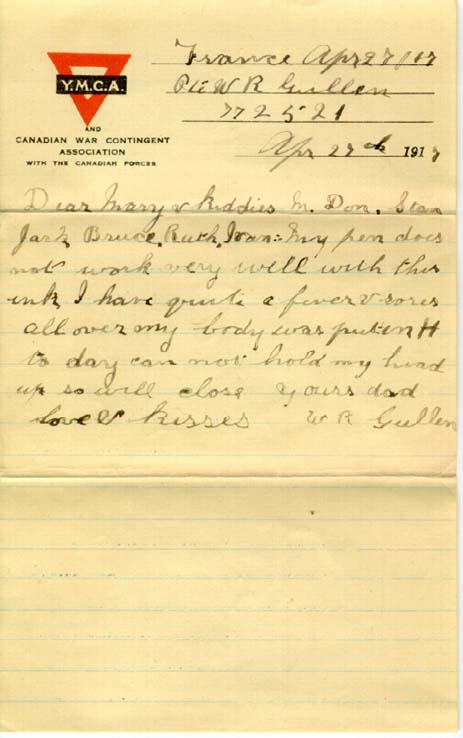 France Apr 27/17
Y.M.C.A.
Pte W R Gullen
772521
AND
CANADIAN WAR CONTINGENT
ASSOCIATION
WITH THE CANADIAN FORCES
Apr 27th 1917
Dear Mary & Kiddies M. Don. Stan
Jack Bruce, Ruth, Ivan:- My pen does
not work very well with this
ink I have quite a fever & sores
all over my body was put in H
to day can not hold my head
up so will close Yours dad
love & kisses W R Gullen